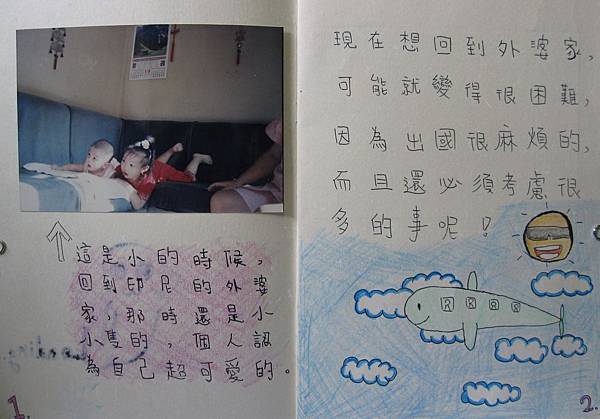 這是小的時候，
回到印尼的外婆
家，那時還是小
小隻的，個人認
為自己超可愛的。
1.
現在想回到外婆家，
可能就變得很困難，
因為出國很麻煩的，
而且還必須考慮很
多的事呢！
2.